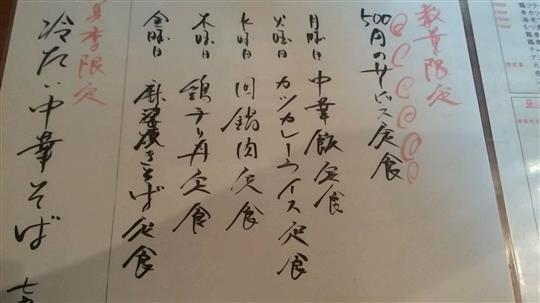 数量限定
500円のサービス定食
月曜日 中華飯定食
火曜日 カツカレーライス定食
水曜日 回鍋肉定食
木曜日 鶏チリ丼定食
金曜日 麻婆焼きそば定食
夏季限定
冷たい中華そば 七